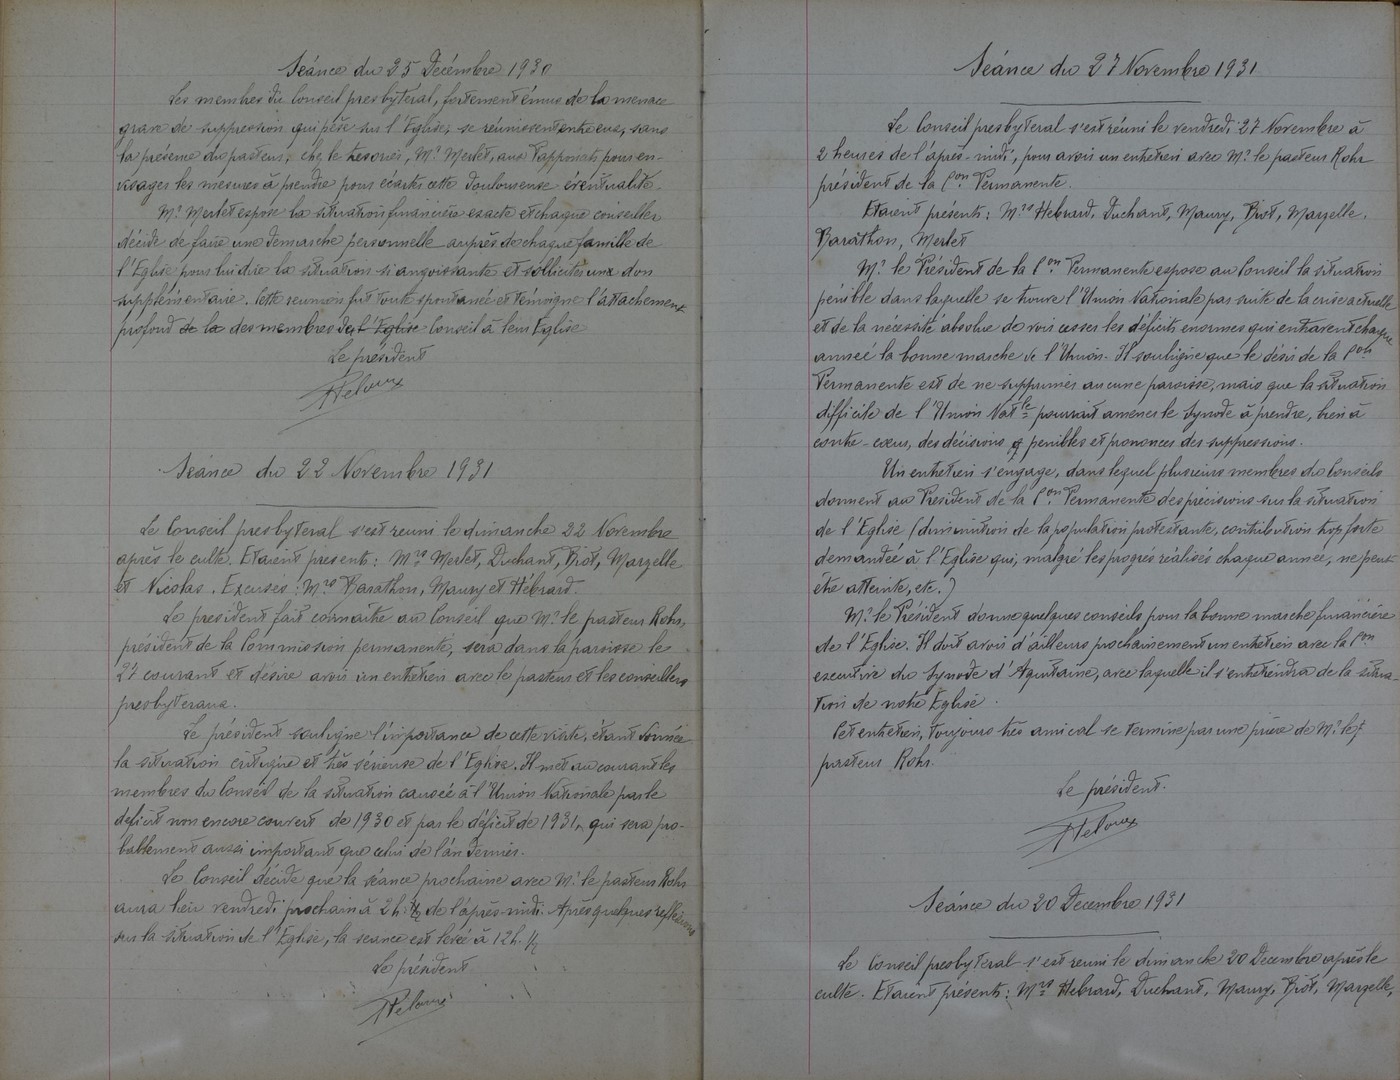 Séance du 25 Décembre 1930
Les membres du Conseil presbytéral, fortement émus de la menace
grave de suppression qui pèse sur l'Eglise, se réunissent entre eux, sans
la présence du pasteur, chez le trésorier, Mr Merlet, aux Tapponats pour en-
visager les mesures à prendre pour écarter cette douloureuse éventualité.
Mr Merlet expose la situation financière exacte et chaque conseiller
décide de faire une démarche personnelle auprès de chaque famille de
l'Eglise pour lui dire la situation si angoissante et solliciter un don
supplémentaire. Cette réunion fut toute spontanée et témoigne l'attachement
profond de la des membres du l'Eglise Conseil à leur Eglise
Le président
Séance du 22 Novembre 1931
Le Conseil presbytéral s'est réuni le dimanche 22 Novembre
après le culte. Etaient présents : Mrs Merlet, Duchant, Biot, Mazelle
et Nicolas. Excusés : Mrs Barathon, Maury et Hébrard.
Le président fait connaître au Conseil que Mr le pasteur Rohr,
président de la Commission permanente, sera dans la paroisse le
27 courant et désire avoir un entretien avec le pasteur et les conseillers
presbytéraux.
Le président souligne l'importance de cette visite, étant donnée
la situation critique et très sérieuse de l'Eglise. Il met au courant les
membres du Conseil de la situation causée à l'Union Nationale par le
déficit non encore couvert de 1930 et par le déficit de 1931, qui sera pro-
bablement aussi important que celui de l'an dernier.
Le Conseil décide que la séance prochaine avec Mr le pasteur Rohr
aura lieu vendredi prochain à 2h. de l'après-midi. Après quelques réflexions
sur la situation de l'Eglise, la séance est levée à 12h. 1/2
Le président
Séance du 27 Novembre 1931
Le Conseil presbytéral s'est réuni le vendredi 27 Novembre à
2 heures de l'après-midi, pour avoir un entretien avec Mr le pasteur Rohr
président de la Con Permanente.
Etaient présents : Mrs Hébrard, Duchant, Maury, Biot, Mazelle,
Barathon, Merlet
Mr le Président de la Con Permanente expose au Conseil la situation
pénible dans laquelle se trouve l'Union Nationale par suite de la crise actuelle
et de la nécessité absolue de voir cesser les déficits énormes qui entravent chaque
année la bonne marche de l'Union. Il souligne que le désir de la Con
Permanente est de ne supprimer aucune paroisse, mais que la situation
difficile de l'Union Natle pourrait amener le Synode à prendre, bien à
contre-cœur, des décisions pénibles et prononcer des suppressions.
Un entretien s'engage, dans lequel plusieurs membres du Conseils
donnent au Président de la Con Permanente des précisions sur la situation
de l'Eglise (diminution de la population protestante, contribution trop forte
demandée à l'Eglise qui, malgré les progrès réalisés chaque année, ne peut
être atteinte, etc.)
Mr le Président donne quelques conseils pour la bonne marche financière
de l'Eglise. Il doit avoir d'ailleurs prochainement un entretien avec la Con
exécutive du Synode d'Aquitaine, avec laquelle il s'entretiendra de la situa-
tion de notre Eglise.
Cet entretien, toujours très amical se termine par une prière de Mr le
pasteur Rohr.
Le président.
Séance du 20 Décembre 1931
Le Conseil presbytéral s'est réuni le dimanche 20 Décembre après le
culte. Etaient présents : Mrs Hébrard, Duchant, Maury, Biot, Mazelle,